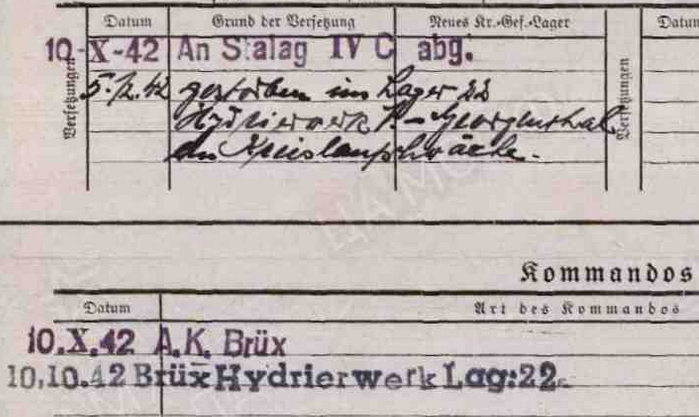 Datum Grund der Versetzung Neues Kr.-Gef.-Lager Datum
10-X-42 An Stalag IV C abg.
Versetzungen
5.12.42 gestorben im Lager 22
Hydrierwerk - Georgenthal
an Kreislaufschwäche.
Versetzungen
Kommandos
Datum Art des Kommandos
10.X.42 A.K. Brüx
10.10.42 Brüx Hydrierwerk Lag:22.